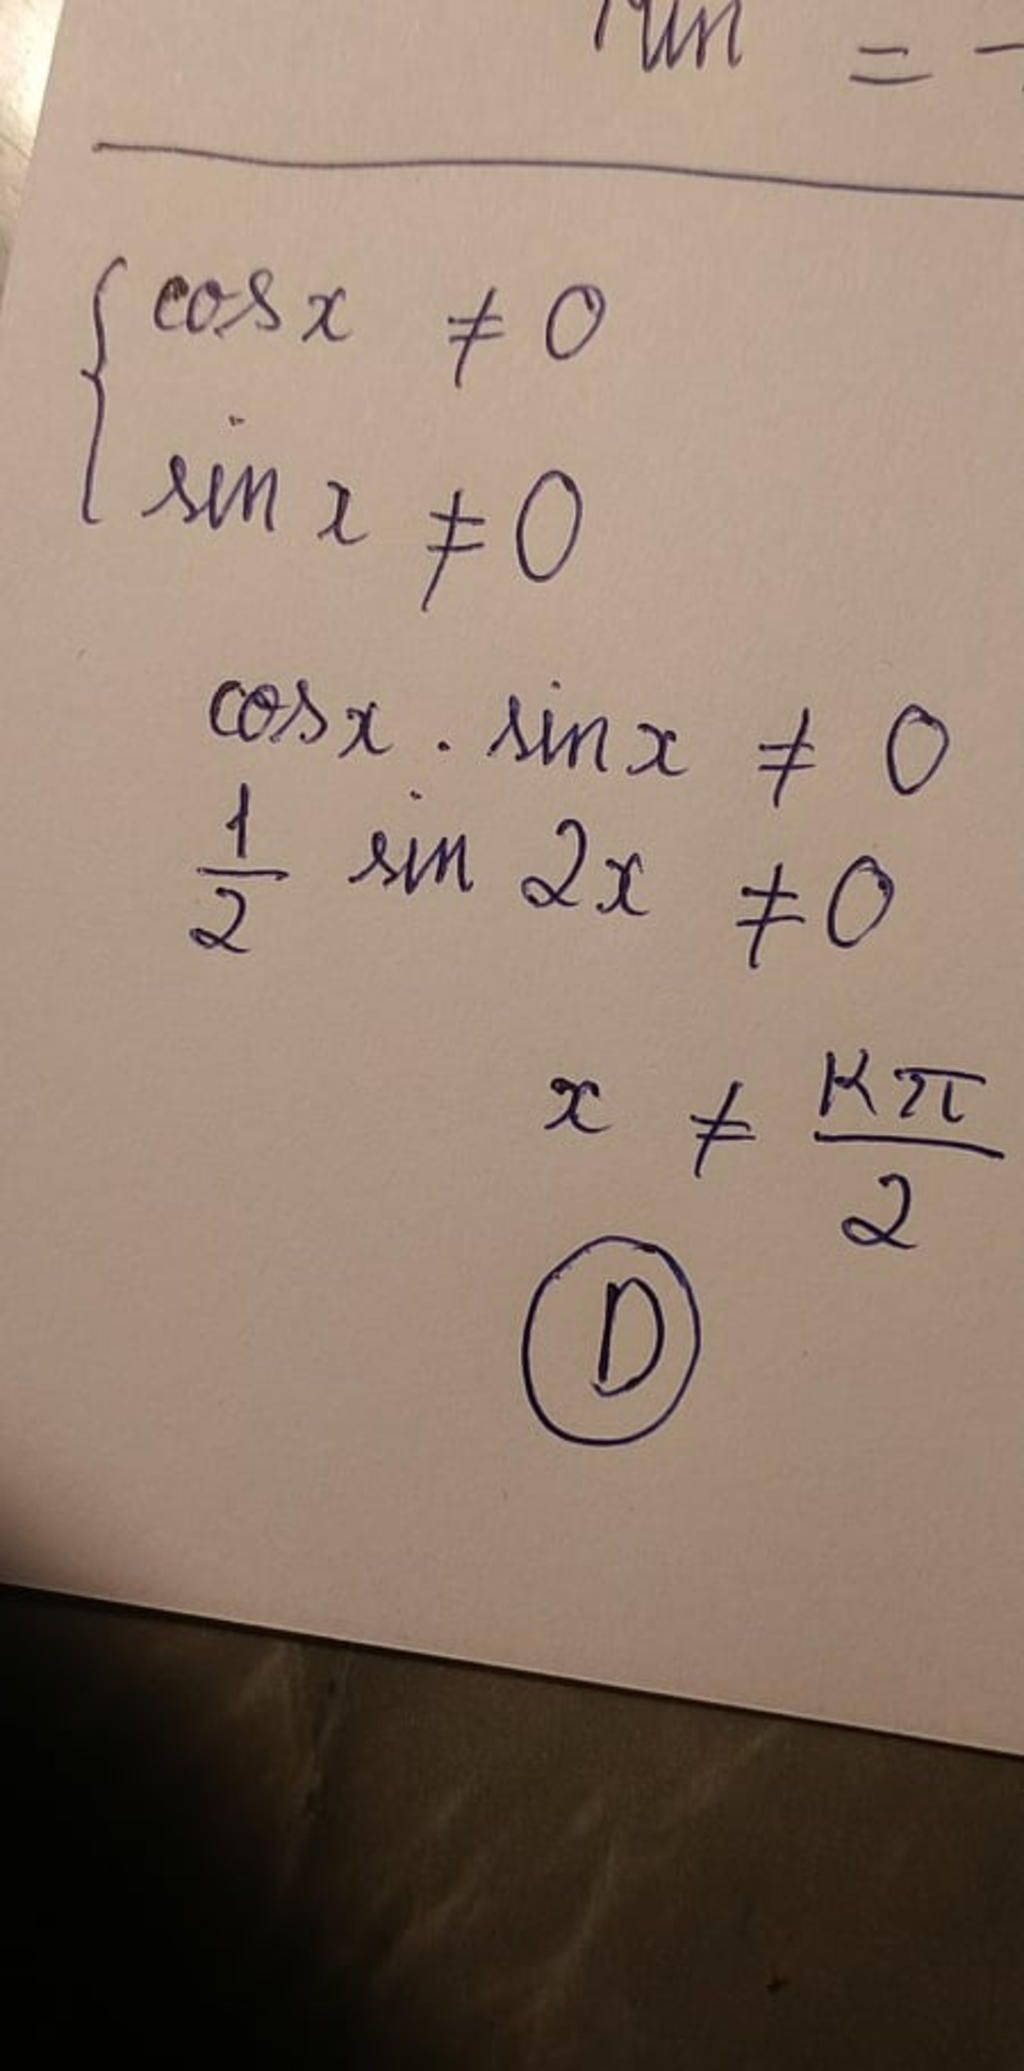 Min = -
cos x ≠ 0
sin x ≠ 0
cos x . sin x ≠ 0
1/2 sin 2x ≠ 0
x ≠ kπ/2
D